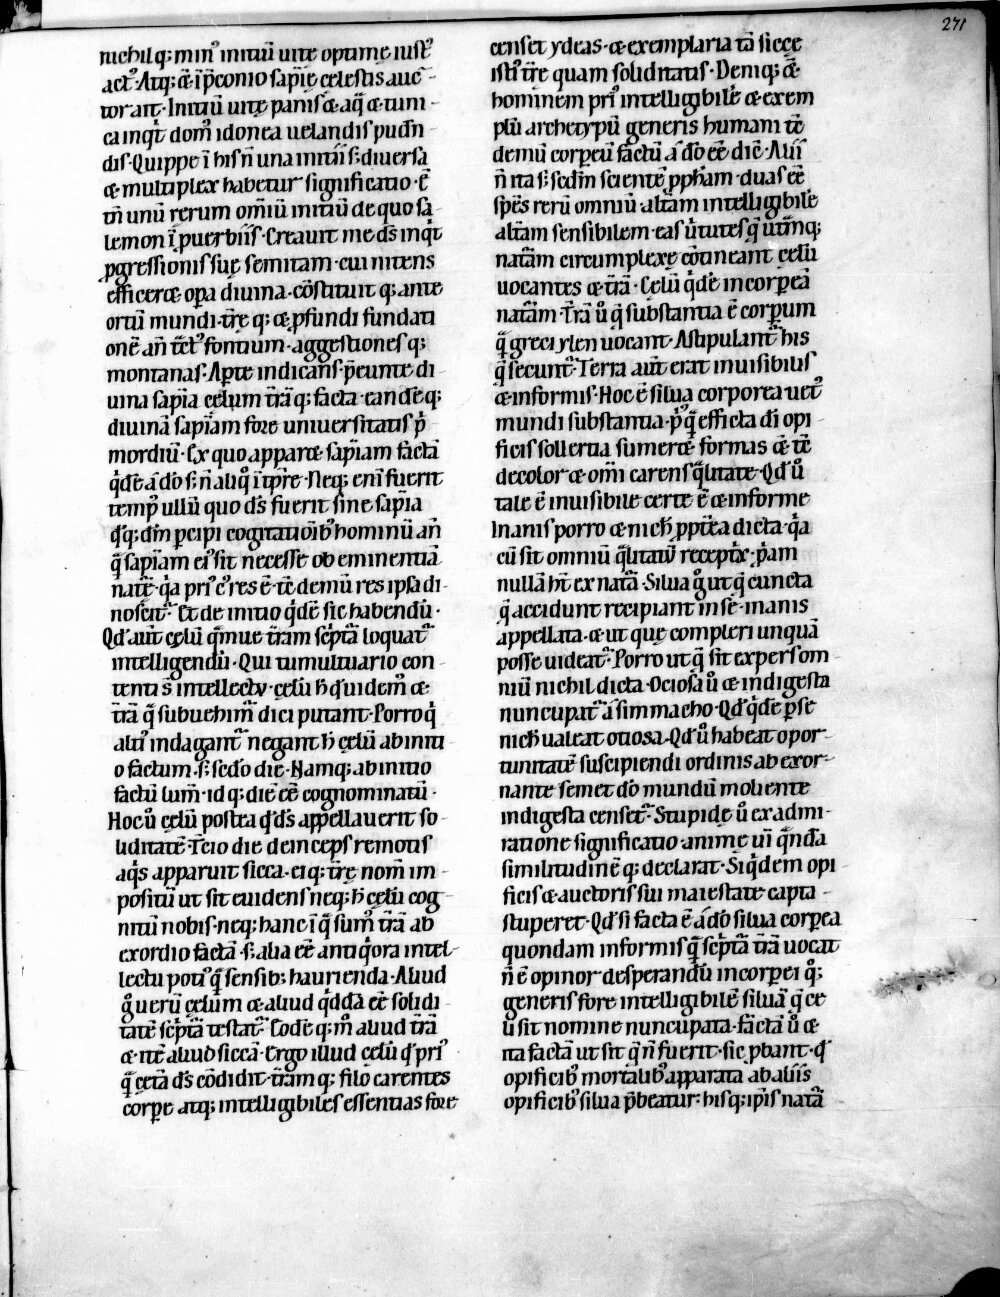 271
nichilq; min᾿ initiū uite optime iust᾿
act᾿. Atq; & ī p̄conio sapīe celestis auc-
torant. Initiū uite panis & aq̄ & tuni-
ca inqt̄ dom᾿ idonea uelandis pudn̄-
dis. Quippe ī his n̄ una initii s; diuersa
& multiplex habetur significatio. ē
tn̄ unū rerum om̄iū initiū de quo sa-
lemon ī puerbiis. Creauit me ds̄ inqt̄
pgressionis sue semitam. cui nitens
efficeret opa diuina. cōstituit q; ante
ortū mundi. tr̄e q; & pfundi fundati
onē an̄ tēt᾿ fontium. aggestiones q;
montanas. Apte indicans p̄eunte di-
uina sapīa celum tr̄āq; facta. eandēq;
diuinā sapīam fore uniuersitatis p̄-
mordiū. Ex quo apparet sapīam factā
q̄dē a dō s; n̄ aliq̊ tp̄re. Neq; enī fuerit
temp᾿ ullū quo ds̄ fuerit sine sapīa
d'q; dm̄ pcipi cogitatiōib᾿ hominū an̄
q̄ sapīam ei᾿ sit necesse ob eminentiā
nat̄e. q̄a pri᾿ c᾿ res ē. tē demū res ipsa di-
noscit᾿. Et de initio q̄dē sic habendū.
Qd' aut̄ celū q̄mue tr̄am sc̄ptā loquat᾿
intelligendū. Qui tumultuario con-
tenti s̄ intellectu. celū h̄ quidem &
tr̄ā q̄ subuehim᾿ dici putant. Porro q̄
alti᾿ indagant᾿ negant h̄ celū ab initi
o factum. s; sed'o die. Namq; ab initio
factū lum̄. id q; diē eē cognominatū.
Hoc ů celū postea q̄ ds̄ appellauerit so-
liditatē. Tc̄io die deinceps remotis
aq̄s apparuit sicca. eiq; tr̄e nom̄ im-
positū ut sit euidens neq; h̄ celū cog-
nitū nobis. neq; hanc ī q̄ sum᾿ tr̄ā ab
exordio factā. s; alia eē antiq̊ora intel-
lectu poti᾿ q̄ sensib; haurienda. Aliud
g̊ uerū celum & aliud q̄ddā eē solidi-
tatē sc̄ptā testat᾿. Eodē q; m̊ aliud tr̄ā
& itē aliud siccā. Ergo illud celū q̄ pri᾿
q̄ cetā ds̄ cōdidit. tr̄amq; filo carentes
corpe atq; intelligibiles essentias fore
censet ydeas. & exemplaria tā sicce
isti᾿ tr̄e quam soliditatis. Deniq; &
hominem pri᾿ intelligibilē & exem
plū archetypū generis humani tē
demū corpeū factū a dō eē dic̄. Alii
n̄ ita s; sedm̄ scientē pphām duas eē
sp̄es rerū omniū alt̄am intelligibilē
alt̄am sensibilem. eas ůtutes q̄ utm̄q;
natām circumplexe cōtineant celū
uocantes & tr̄ā. Celū q̄dē incorpeā
natām. Tr̄ā ů q̄ substantia ē corpum
q̄ greci ylen uocant. Astipulant᾿ his
q̄ secunt᾿. Terra aut̄ erat inuisibilis
& informis. Hoc ē silua corporea uet᾿
mundi substantia. p᾿ q̄ efficta dī opi-
ficis sollertia sumeret formas & tē
decolor & om̄i carens q̄litate. Qd' ů
tale ē inuisibile certe ē & informe
Inanis porro & nich̄ ppt̄ea dicta. q̄a
cū sit omniū q̄litatū receptix. p̄am
nullā ht̄ ex natā. Silua g̊ ut q̄ cuncta
q̄ accidunt recipiant in se. inanis
appellata. & ut que compleri unquā
posse uideat᾿. Porro ut q̄ sit expers om
niū nichil dicta. Ociosa ů & indigesta
nuncupat᾿ a simmacho. Qd' q̄dē p se
nich̄ ualeat otiosa. Qd' ů habeat opor-
tunitatē suscipiendi ordinis ab exor-
nante semet dō mundū moliente
indigesta censet᾿. Stupide ů ex admi-
ratione significatio anime uī q̄ndā
similitudinē q; declarat. Siq̄dem opi
ficis & auctoris sui maiestate capta-
stuperet. Qd' si facta ē a dō silua corpea
quondam informis q̄ sc̄ptā tr̄ā uocat
n̄ ē opinor desperandū incorpei q̊;
generis fore intelligibilē siluā q̄ ce
lī sit nomine nuncupata. factā ů &
ita factā ut sit q̄ n̄ fuerit. sic pbant. q̄
opificib᾿ mortalib᾿ apparata ab aliis
opificib᾿ silua p̄beatur. hisq; ip̄is natā